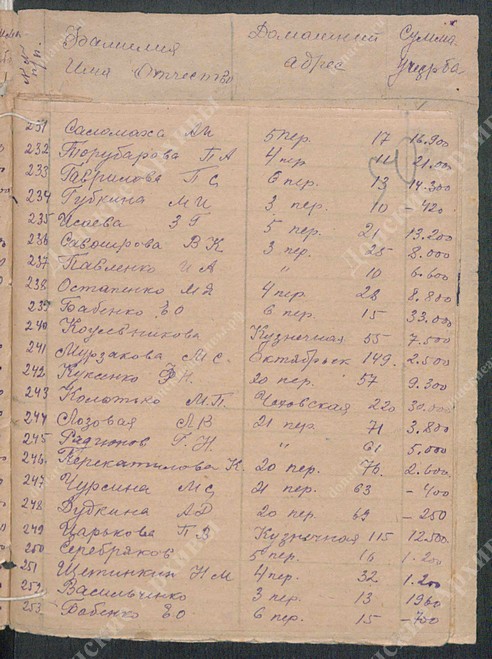 №№ п/п. Фамилия Имя Отчество Домашний адрес Сумма ущерба
231 Саломаха М 5 пер. 17 16.900
232 Торубарова П А 4 пер 21.000
233 Гаврилова П С 6 пер. 13 14.300
234 Губкина М И 3 пер. 10 - 420
235 Исаева З Г 5 пер. 21 13.200
236 В К 3 пер. 25 8.000
237 Павленко И А " 10 6.600
238 Остапенко М Я 4 пер. 28 8.800
239 Бабенко Е О 6 пер. 15 33.000
240 Кузнечная 55 7.500
241 Мурзакова М С. Октябрьск 149. 2.500
242 Куксенко 20 пер. 57 9.300
243 М.П. Чеховская 220 30.000
244 Лозовая Л В 21 пер 71 3.800
245 " 61 5.000
246 К. 20 пер. 76 2.600
247 Чурсина М С 21 пер. 63 - 400
248 А Д 20 пер. 69 - 250
249 Царькова П Я Кузнечная 115 12.500
250 Серебряков 5 пер. 16 1.200
251 Щетинкин Н М 4 пер. 32 1.200
252 Васильченко 3 пер. 13 1960
253 Бабенко Е О 6 пер. 15 - 700